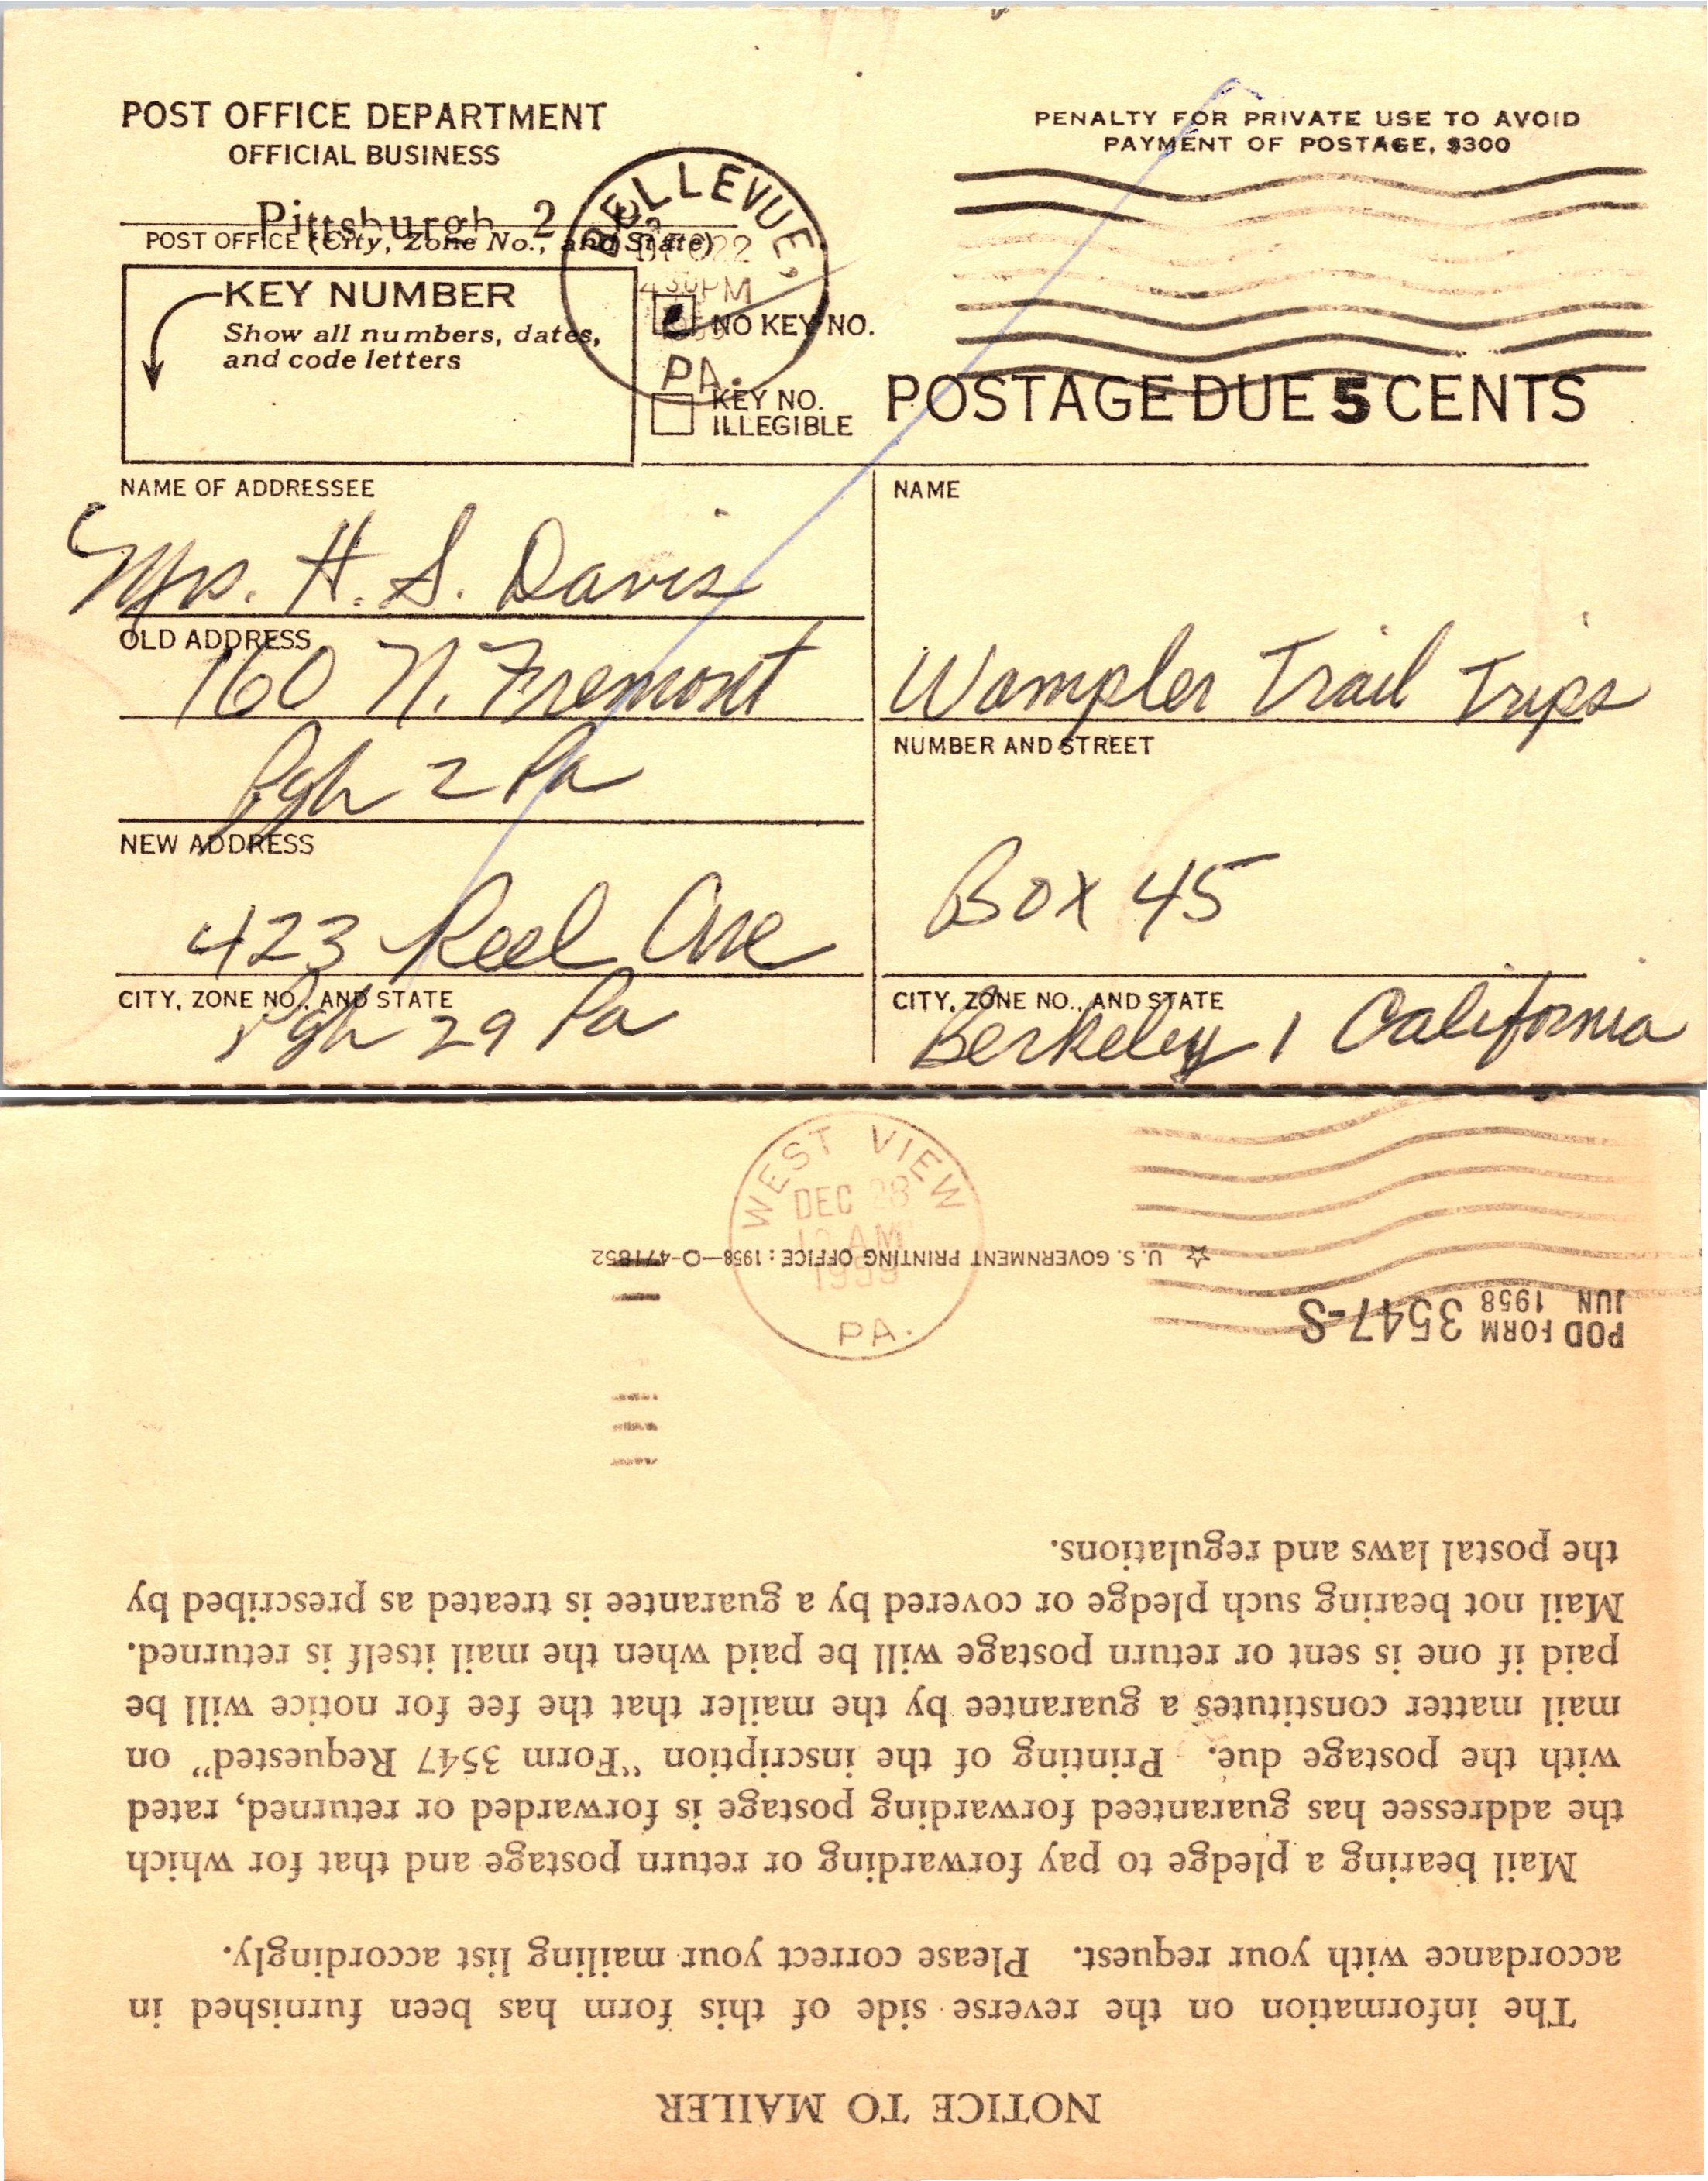 POST OFFICE DEPARTMENT
OFFICIAL BUSINESS
Pittsburgh 2 Pa
POST OFFICE (City, Zone No., and State)
PENALTY FOR PRIVATE USE TO AVOID
PAYMENT OF POSTAGE, $300
BELLEVUE,
DEC 22
430PM
PA.
KEY NUMBER
Show all numbers, dates,
and code letters
NO KEY NO.
KEY NO.
ILLEGIBLE
POSTAGE DUE 5 CENTS
NAME OF ADDRESSEE
Mrs. H. S. Davis
OLD ADDRESS
160 N. Fremont
Pgh 2 Pa
NEW ADDRESS
423 Reel Ave
CITY, ZONE NO., AND STATE
Pgh 29 Pa
NAME
Wampler Trail Trips
NUMBER AND STREET
Box 45
CITY, ZONE NO., AND STATE
Berkeley 1 California
WEST VIEW
DEC 28
10 AM
1959
PA.
NOTICE TO MAILER
The information on the reverse side of this form has been furnished in
accordance with your request. Please correct your mailing list accordingly.
Mail bearing a pledge to pay forwarding or return postage and that for which
the addressee has guaranteed forwarding postage is forwarded or returned, rated
with the postage due. Printing of the inscription "Form 3547 Requested" on
mail matter constitutes a guarantee by the mailer that the fee for notice will be
paid if one is sent or return postage will be paid when the mail itself is returned.
Mail not bearing such pledge or covered by a guarantee is treated as prescribed by
the postal laws and regulations.
POD FORM 3547-S
JUN 1958
☆ U.S. GOVERNMENT PRINTING OFFICE: 1958—O-471852